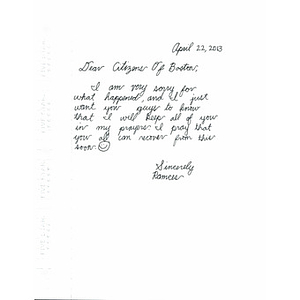 April 22, 2013
Dear Citizens Of Boston,
I am very sorry for
what happened, and I just
want you guys to know
that I will keep all of you
in my prayers. I pray that
you all can recover from this
soon.
Sincerely
Ramces